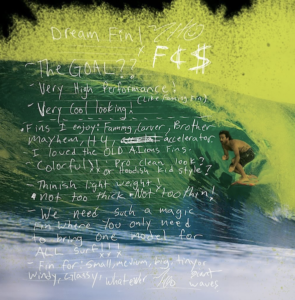 Dream Fin!
F4$
- The GOAL??
- Very High Performance!
- Very Cool looking!
• Fins I enjoy: Fanning, Carver, Brother
Mayhem, H4, accelerator.
I loved the OLD AI
- Colorful
Pro, clean, look?
or Hoodish kid style?
- Thinish light weight
Not too thick • Not too thin!
- We need such a magic
Fin where you only need
to bring one model for
ALL surf!!!
- Fin for: small, medium, big, tiny or
windy, glassy, whatever
waves